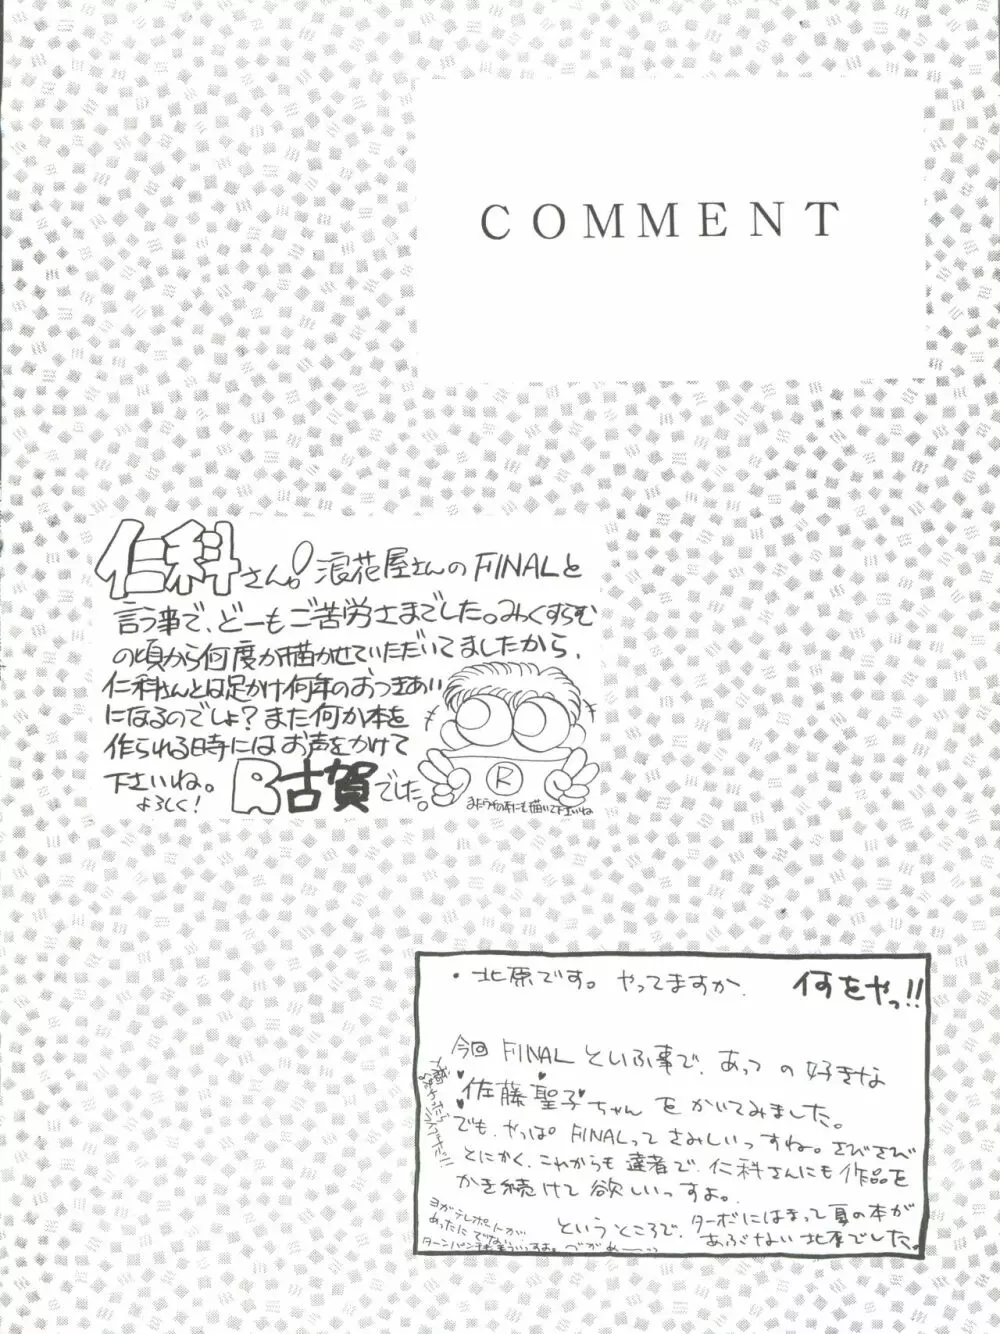 COMMENT
仁科さん!浪花屋さんのFINALと
言う事で、どーもご苦労さまでした。みっくすちむ
の頃から何度か描かせていただいてましたから、
仁科さんとは足かけ何年のおつきあい
になるのでしょ?また何か本を
作られる時にはお声をかけて
下さいね。
よろしく!
R古賀でした。
R
・北原です。やってますか。
何をやっ!!
今回FINALといふ事で、あっつの好きな
佐藤聖子ちゃんをかいてみました。
でも、やっぱFINALってさみしいっすね。さびさび
とにかく、これからも達者で、仁科さんにも作品を
かき続けて欲しいっすよ。
というところで、ターボにはまって夏の本が
あぶない北原でした。
ヨガテレポートが
あったにでない